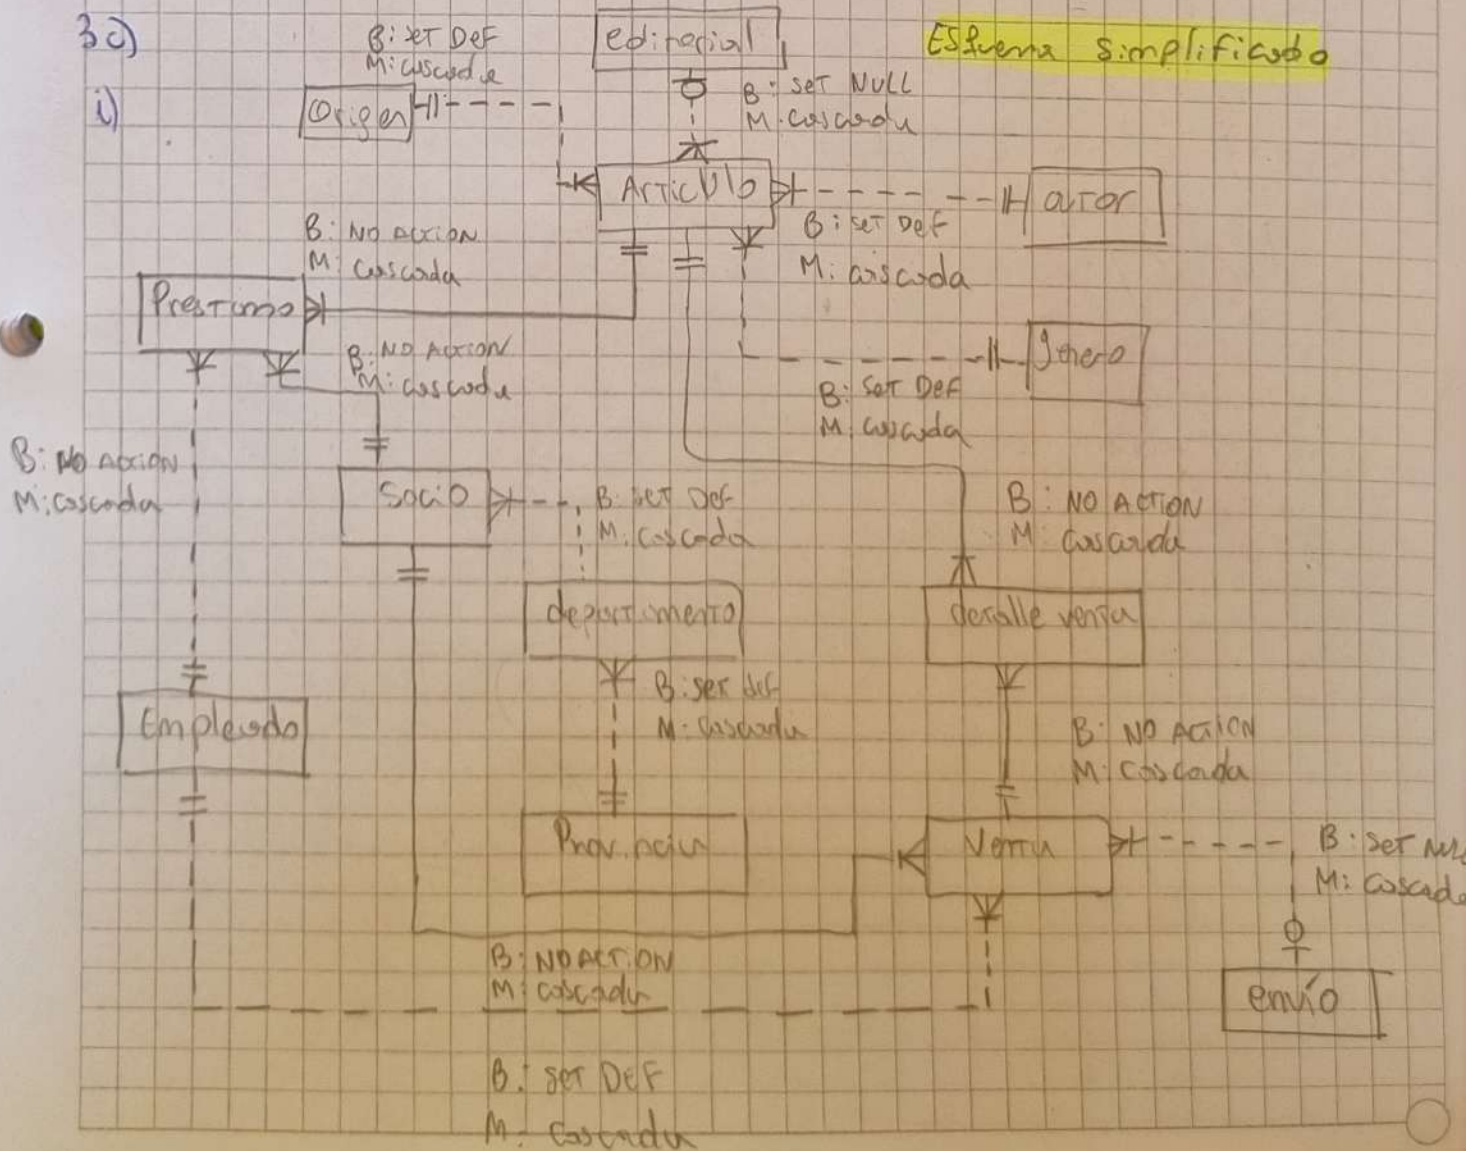 3c)
i)
B: SET DEF
M: cascada
editorial
Esquema Simplificado
Origen
B: SET NULL
M: cascada
Articulo
autor
B: NO ACCION
M: cascada
B: SET DEF
M: cascada
Prestamo
B: NO ACTION
M: cascada
genero
B: SET DEF
M: cascada
B: NO ACCION
M: cascada
Socio
B: SET DEF
M: cascada
B: NO ACTION
M: cascada
departamento
detalle venta
B: SET def
M: cascada
Empleado
B: NO ACTION
M: cascada
Provincia
Venta
B: SET NULL
M: cascada
B: NO ACTION
M: cascada
envío
B: SET DEF
M: cascada